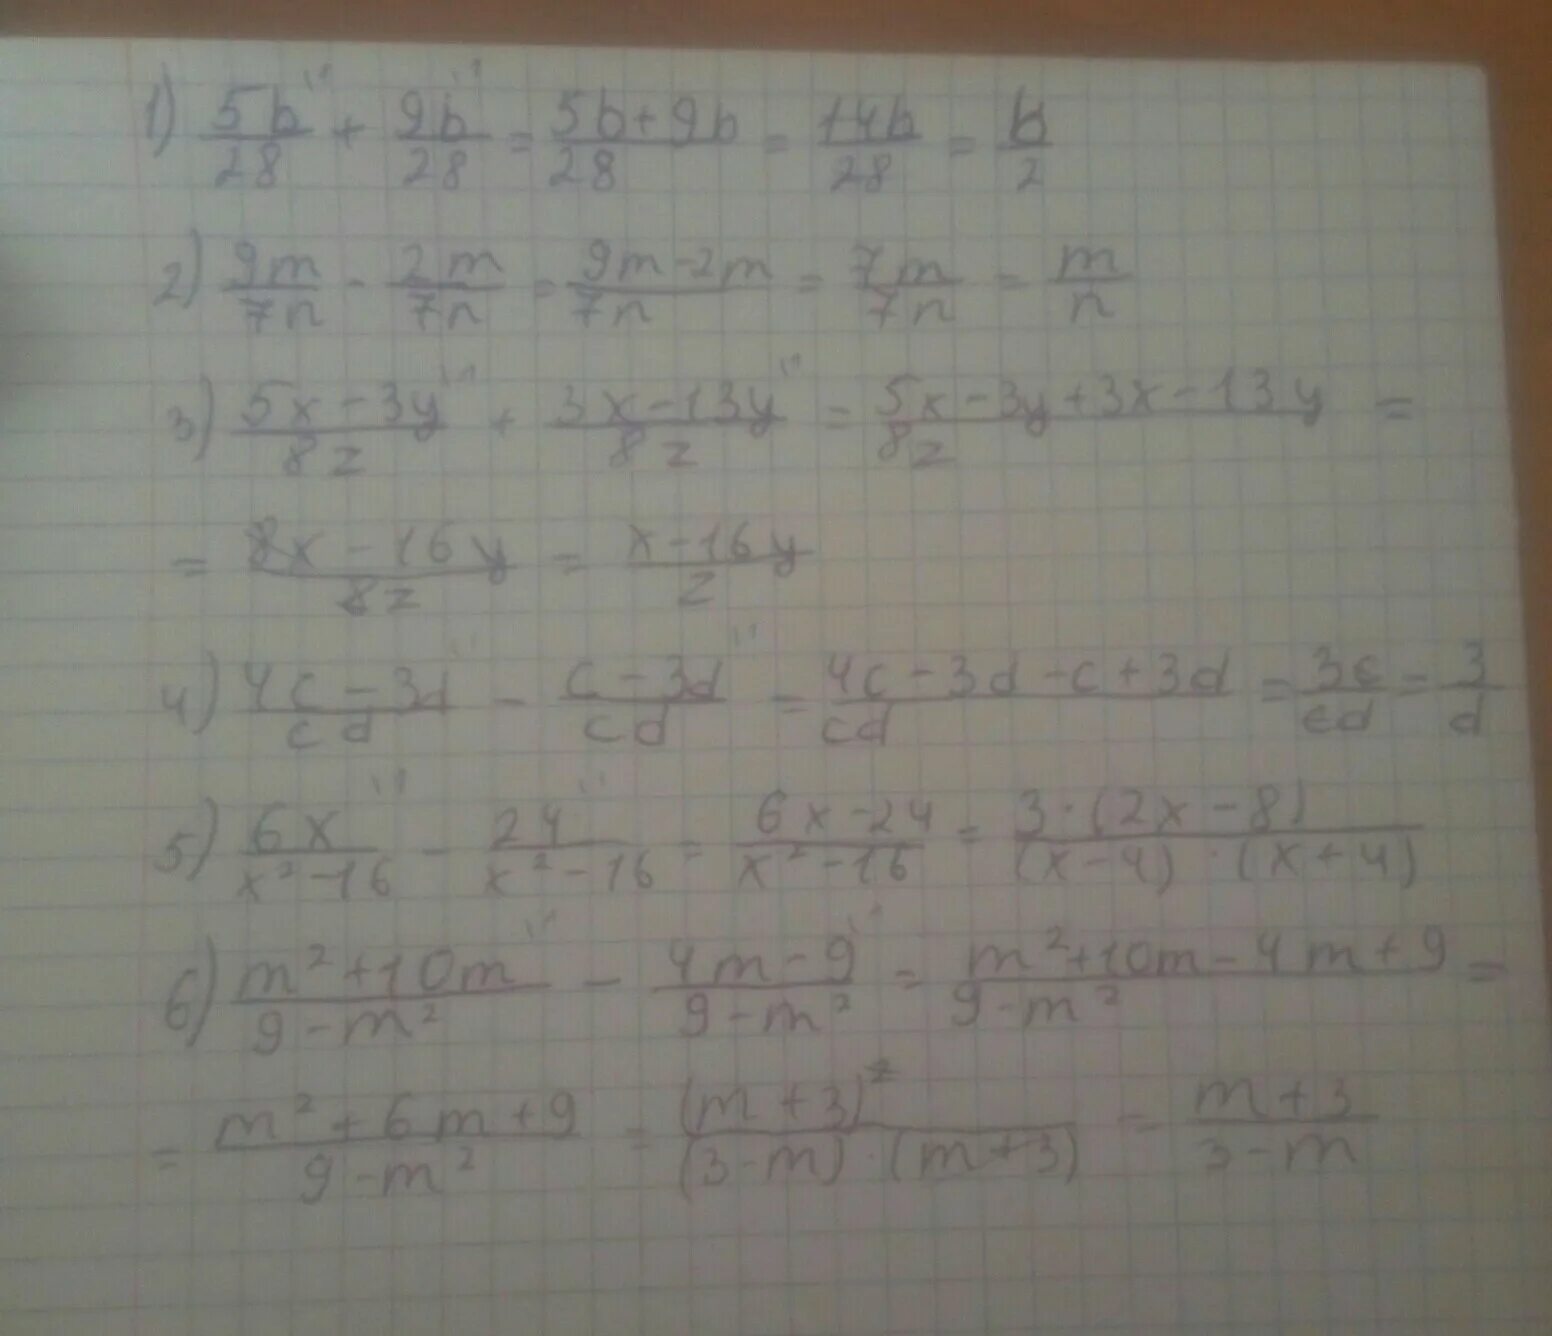 1) 5b/28 + 9b/28 = 5b+9b/28 = 14b/28 = b/2
2) 9m/7n - 2m/7n = 9m-2m/7n = 7m/7n = m/n
3) 5x-3y/8z + 3x-13y/8z = 5x-3y+3x-13y/8z =
= 8x-16y/8z = x-16y/z
4) 4c-3d/cd - c-3d/cd = 4c-3d-c+3d/cd = 3c/cd = 3/d
5) 6x/x²-16 - 24/x²-16 = 6x-24/x²-16 = 3·(2x-8)/(x-4)·(x+4)
6) m²+10m/9-m² - 4m-9/9-m² = m²+10m-4m+9/9-m² =
= m²+6m+9/9-m² = (m+3)²/(3-m)·(m+3) = m+3/3-m